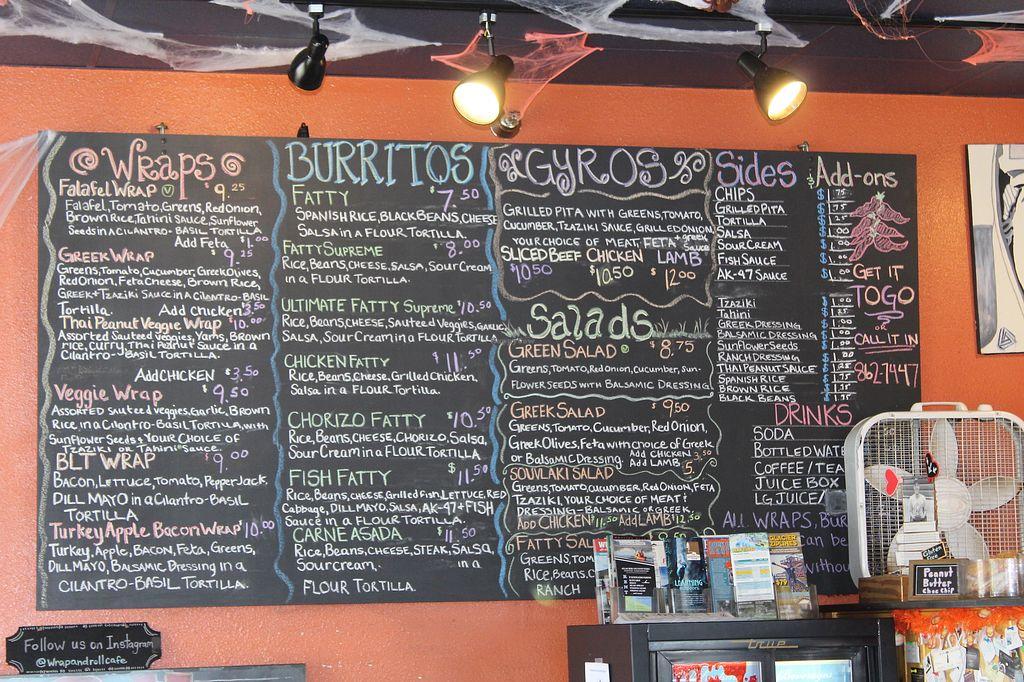 Wraps
Falafel Wrap V $9.25
Falafel, Tomato, Greens, Red Onion,
Brown Rice, Tahini Sauce, Sunflower
Seeds in a Cilantro-Basil Tortilla
Add Feta $1.00
Greek Wrap $9.25
Greens, Tomato, Cucumber, Greek Olives,
Red Onion, Feta Cheese, Brown Rice,
Greek + Tzaziki Sauce in a Cilantro-Basil
Tortilla. Add Chicken 3.50
Thai Peanut Veggie Wrap $10.00
Assorted Sauteed Veggies, Yams, Brown
Rice, Curry Thai Peanut Sauce in a
Cilantro-Basil Tortilla.
Add CHICKEN $3.50
Veggie Wrap $9.50
Assorted Sauteed veggies, Garlic, Brown
Rice in a Cilantro-Basil Tortilla, with
Sunflower Seeds + Your Choice of
Tzaziki or Tahini Sauce.
BLT Wrap $9.00
Bacon, Lettuce, Tomato, PepperJack,
Dill Mayo in a Cilantro-Basil
Tortilla
Turkey Apple Bacon Wrap $10.00
Turkey, Apple, Bacon, Feta, Greens,
Dill Mayo, Balsamic Dressing in a
Cilantro-Basil Tortilla.
BURRITOS
FATTY $7.50
Spanish Rice, Black Beans, Cheese
Salsa in a Flour Tortilla.
Fatty Supreme $8.00
Rice, Beans, Cheese, Salsa, Sour Cream
in a Flour Tortilla.
Ultimate Fatty Supreme $10.50
Rice, Beans, Cheese, Sauteed Veggies, Garlic
Salsa, Sour Cream in a Flour Tortilla
Chicken Fatty $11.50
Rice, Beans, Cheese, Grilled Chicken,
Salsa in a Flour Tortilla.
Chorizo Fatty $10.50
Rice, Beans, Cheese, Chorizo, Salsa,
Sour Cream in a Flour Tortilla
Fish Fatty $11.50
Rice, Beans, Cheese, Grilled Fish, Lettuce, Red
Cabbage, Dill Mayo, Salsa, AK-47 + Fish
Sauce in a Flour Tortilla.
Carne Asada $11.50
Rice, Beans, Cheese, Steak, Salsa,
Sour cream. in a
Flour Tortilla.
GYROS
Grilled Pita with Greens, Tomato,
Cucumber, Tzaziki Sauce, Grilled Onion
Your Choice of Meat, Feta + greek Sauce
Sliced Beef Chicken Lamb
$10.50 $10.50 $12.00
Salads
Green Salad V $8.75
Greens, Tomato, Red Onion, Cucumber, Sun-
flower Seeds with Balsamic Dressing
Greek Salad $9.50
Greens, Tomato, Cucumber, Red Onion,
Greek Olives, Feta with choice of Greek
or Balsamic Dressing Add Chicken 3.50
Add Lamb 5.
Souvlaki Salad
Greens, Tomato, Cucumber, Red Onion, Feta
Tzaziki Your Choice of Meat +
Dressing - Balsamic or Greek.
Add Chicken $11.50 Add Lamb $12.50
Fatty Sal
Greens, Tom
Rice, Beans, C
Ranch
Sides
Chips
Grilled Pita
Tortilla
Salsa
Sour Cream
Fish Sauce
AK-47 Sauce
Tzaziki
Tahini
Greek Dressing
Balsamic Dressing
Sunflower Seeds
Ranch Dressing
Thai Peanut Sauce
Spanish Rice
Brown Rice
Black Beans
& Add-ons
GET IT
TOGO
OR
CALL IT IN
862-7447
DRINKS
Soda
Bottled Wate
Coffee/Tea
Juice Box
Lg. Juice/
All Wraps, Bur
can be
withou
Gluten Free
Peanut
Butter
Choc Chip
Follow us on Instagram
@wrapandrollcafe
true
Beverages